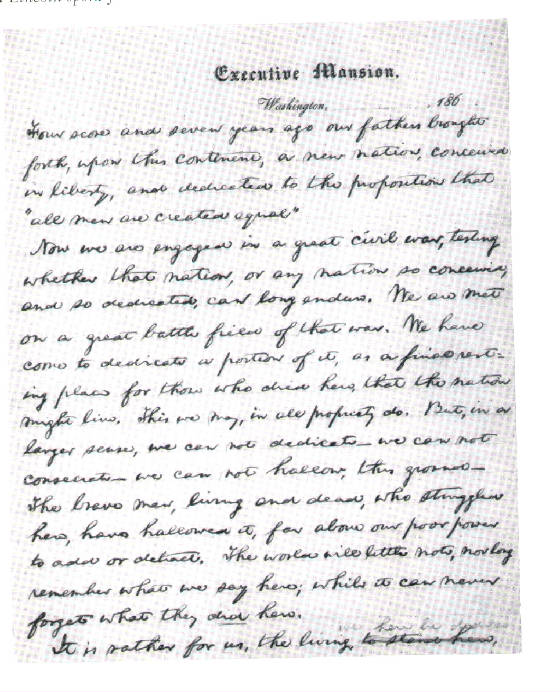 Lincoln spoke
Executive Mansion.
Washington, , 186 .
Four score and seven years ago our fathers brought
forth, upon this continent, a new nation, conceived
in liberty, and dedicated to the proposition that
"all men are created equal"
Now we are engaged in a great civil war, testing
whether that nation, or any nation so conceived,
and so dedicated, can long endure. We are met
on a great battle field of that war. We have
come to dedicate a portion of it, as a final rest-
ing place for those who died here, that the nation
might live. This we may, in all propriety do. But, in a
larger sense, we can not dedicate — we can not
consecrate — we can not hallow, this ground —
The brave men, living and dead, who struggled
here, have hallowed it, far above our poor power
to add or detract. The world will little note, nor long
remember what we say here; while it can never
forget what they did here.
we here be
It is rather for us, the living, to stand here,